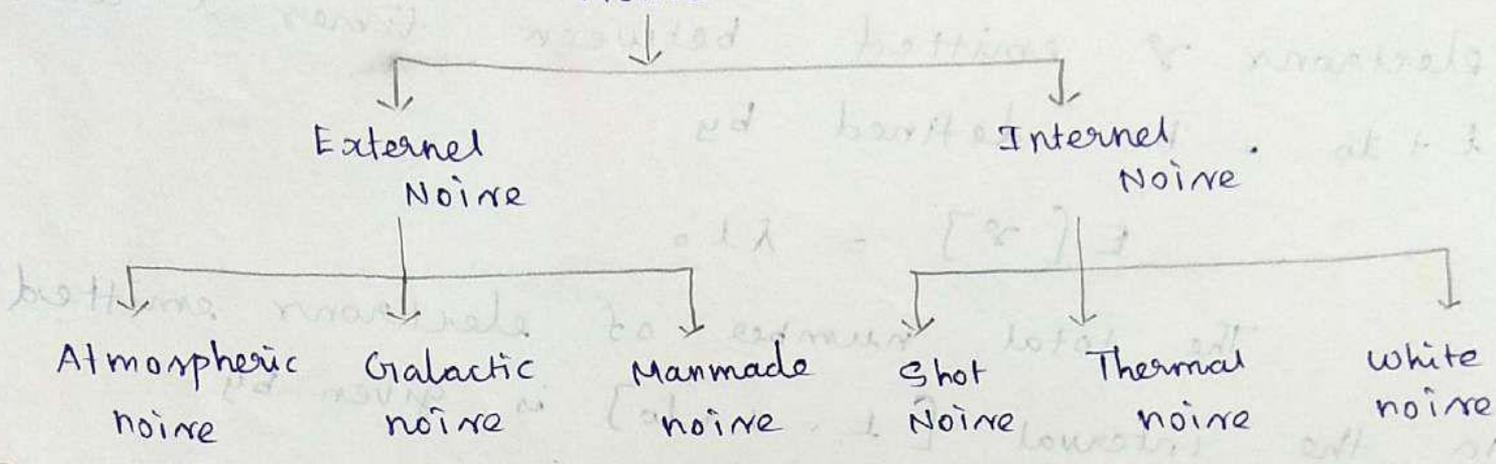 Externel
Noise
Internel
Noise
Atmospheric
noise
Galactic
noise
Manmade
noise
Shot
Noise
Thermal
noise
White
noise